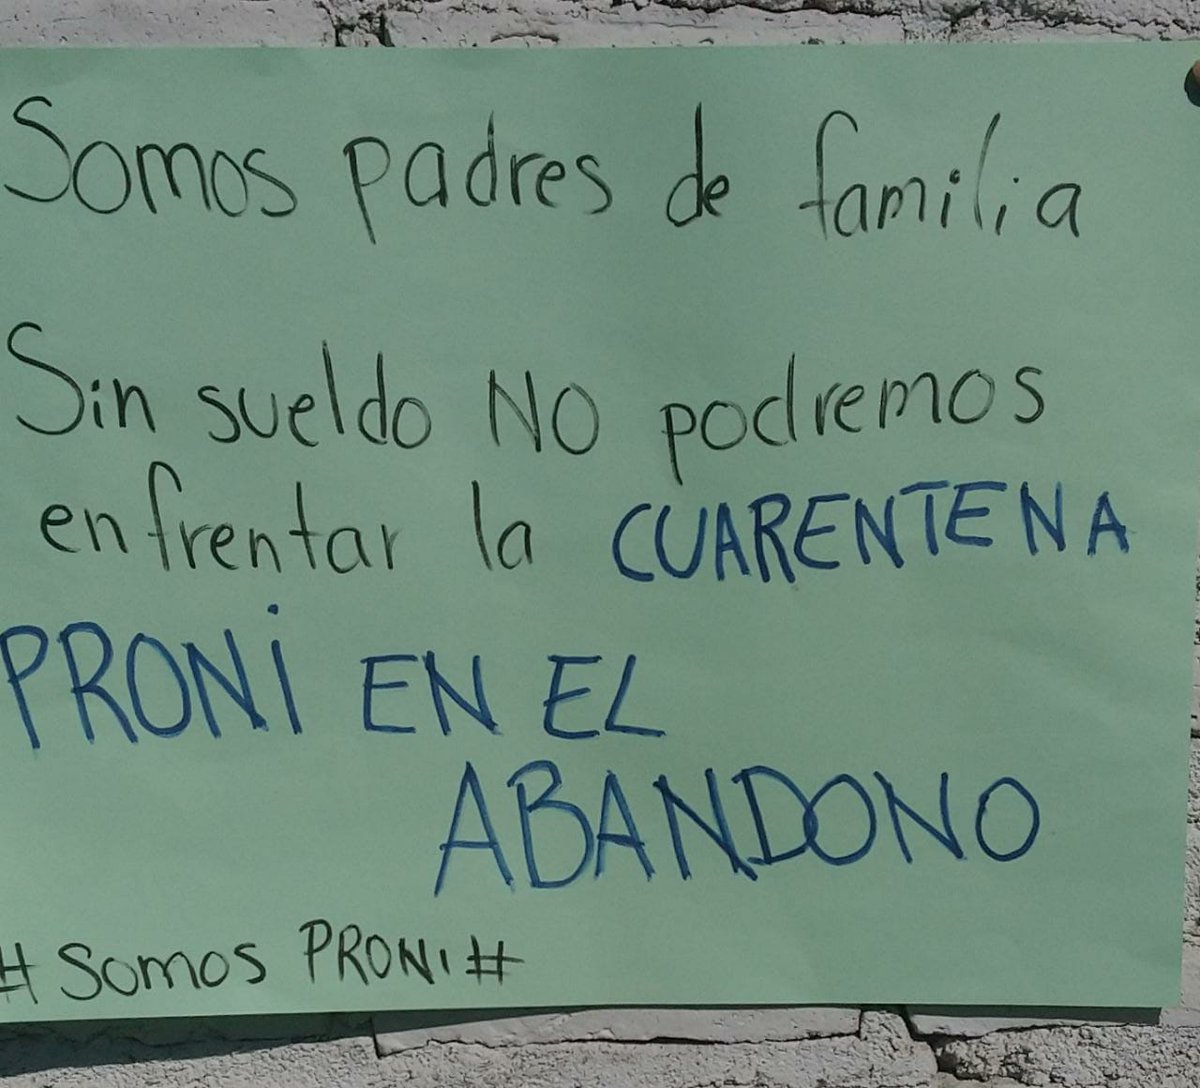 Somos padres de familia
Sin sueldo NO podremos
enfrentar la CUARENTENA
PRONi EN EL
ABANDONO
# Somos PRONI #